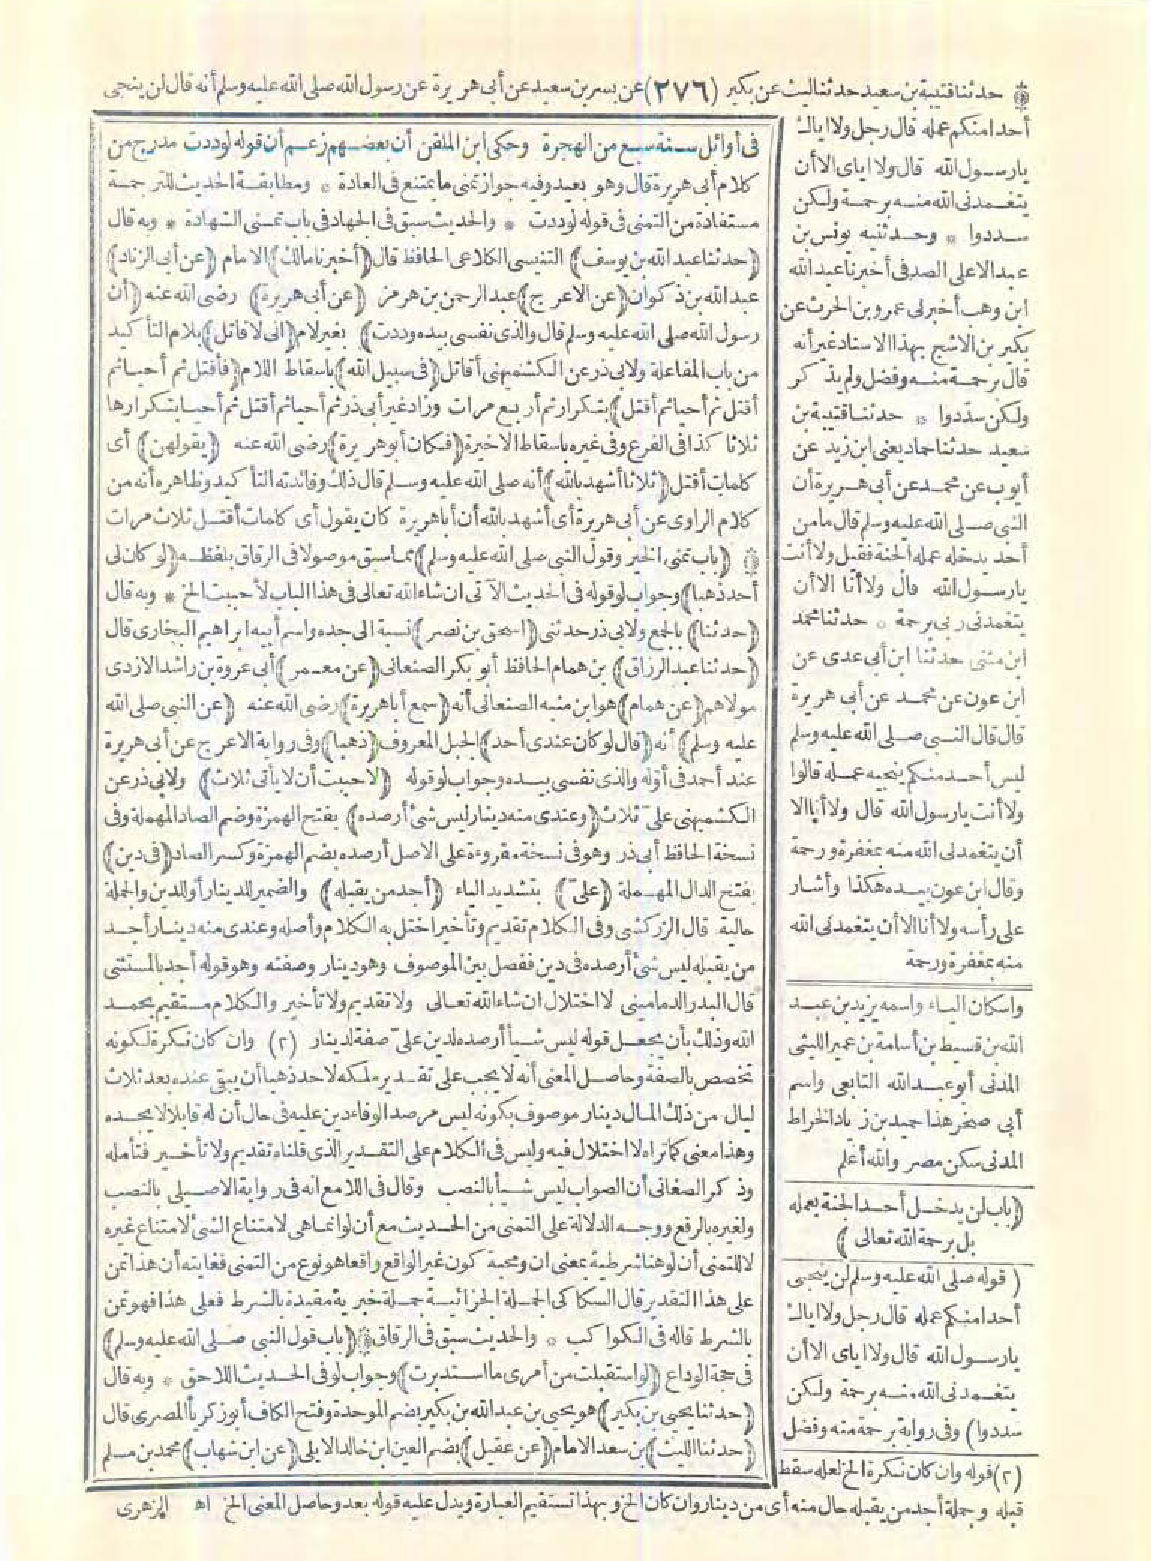 حدثنا قتيبة بن سعيد حدثنا ليث عن بكير (٢٧٦) عن بسر بن سعيد عن أبى هريرة عن رسول الله صلى الله عليه وسلم أنه قال لن ينجى
أحدا منكم عمله قال رجل ولا اياك
يا رسول الله قال ولا اياى الا أن
يتغمدنى الله منه برحمة ولكن
سددوا * وحدثنيه يونس بن
عبد الاعلى الصدفى أخبرنا عبد الله
ابن وهب أخبرنى عمرو بن الحرث عن
بكير بن الاشج بهذا الاسناد غير أنه
قال برحمة منه وفضل ولم يذكر
ولكن سددوا * حدثنا قتيبة بن
سعيد حدثنا حماد يعنى ابن زيد عن
أيوب عن محمد عن أبى هريرة أن
النبى صلى الله عليه وسلم قال ما من
أحد يدخله عمله الجنة فقيل ولا أنت
يا رسول الله قال ولا أنا الا أن
يتغمدنى ربى برحمة * حدثنا محمد
ابن مثنى حدثنا ابن أبى عدى عن
ابن عون عن محمد عن أبى هريرة
قال قال النبى صلى الله عليه وسلم
ليس أحد منكم ينجيه عمله قالوا
ولا أنت يا رسول الله قال ولا أنا الا
أن يتغمدنى الله منه بمغفرة ورحمة
وقال ابن عون بيده هكذا وأشار
على رأسه ولا أنا الا أن يتغمدنى الله
منه بمغفرة ورحمة
واسكان الياء واسمه يزيد بن عبد
الله بن قسيط بن أسامة بن عمير الليثى
المدنى أبو عبد الله التابعى واسم
أبى صخر هذا حميد بن زياد الخراط
المدنى سكن مصر والله أعلم
(باب لن يدخل أحد الجنة بعمله
بل برحمة الله تعالى)
(قوله صلى الله عليه وسلم لن ينجى
أحدا منكم عمله قال رجل ولا اياك
يا رسول الله قال ولا اياى الا أن
يتغمدنى الله منه برحمة ولكن
سددوا) وفى رواية برحمة منه وفضل
فى أوائل سنة سبع من الهجرة وحكى ابن الملقن أن بعضهم زعم أن قوله لوددت مدرج من
كلام أبى هريرة قال وهو بعيد وفيه جواز تمنى ما يمتنع فى العادة * ومطابقة الحديث للترجمة
مستفادة من التمنى فى قوله لوددت * والحديث سبق فى الجهاد فى باب تمنى الشهادة * وبه قال
(حدثنا عبد الله بن يوسف) التنيسى الكلاعى الحافظ قال (أخبرنا مالك) الامام (عن أبى الزناد)
عبد الله بن ذكوان (عن الاعرج) عبد الرحمن بن هرمز (عن أبى هريرة) رضى الله عنه (أن
رسول الله صلى الله عليه وسلم قال والذى نفسى بيده وددت) بغير لام (انى لاقاتل) بلام التأكيد
من باب المفاعلة ولابى ذر عن الكشميهنى أقاتل (فى سبيل الله) باسقاط اللام (فأقتل ثم أحيا ثم
أقتل ثم أحيا ثم أقتل) بتكرار ثم أربع مرات وزاد غير أبى ذر ثم أحيا ثم أقتل ثم أحيا بتكرارها
ثلاثا كذا فى الفرع وفى غيره باسقاط الاخيرة (فكان أبو هريرة) رضى الله عنه (يقولهن) أى
كلمات أقتل (ثلاثا أشهد بالله) أنه صلى الله عليه وسلم قال ذلك وفائدته التأكيد وظاهره أنه من
كلام الراوى عن أبى هريرة أى أشهد بالله أن أبا هريرة كان يقول أى كلمات أقتل ثلاث مرات
(باب تمنى الخير وقول النبى صلى الله عليه وسلم) مما سبق موصولا فى الرقاق بلفظه (لو كان لى
أحد ذهبا) وجواب لو قوله فى الحديث الآتى ان شاء الله تعالى فى هذا الباب لأحببت الخ * وبه قال
(حدثنا) بالجمع ولابى ذر حدثنى (اسحق بن نصر) نسبة الى جده واسم أبيه ابراهيم البخارى قال
(حدثنا عبد الرزاق) بن همام الحافظ أبو بكر الصنعانى (عن معمر) أبى عروة بن راشد الازدى
مولاهم (عن همام) هو ابن منبه الصنعانى أنه (سمع أبا هريرة) رضى الله عنه (عن النبى صلى الله
عليه وسلم) أنه (قال لو كان عندى أحد) الجبل المعروف (ذهبا) وفى رواية الاعرج عن أبى هريرة
عند أحمد فى أوله والذى نفسى بيده وجواب لو قوله (لاحببت أن لا يأتى ثلاث) ولابى ذر عن
الكشميهنى على ثلاث (وعندى منه دينار ليس شئ أرصده) بفتح الهمزة وضم الصاد المهملة وفى
نسخة الحافظ أبى ذر وهو فى نسخة مقروءة على الاصل أرصده بضم الهمزة وكسر الصاد (فى دين)
بفتح الدال المهملة (علىّ) بتشديد الياء (أجد من يقبله) والضمير للدينار أو للدين والجملة
حالية قال الزركشى وفى الكلام تقديم وتأخير اختل به الكلام وأصله وعندى منه دينار أجد
من يقبله ليس شئ أرصده فى دين ففصل بين الموصوف وهو دينار وصفته وهو قوله أجد بالمستثنى
قال البدر الدمامينى لا اختلال ان شاء الله تعالى ولا تقديم ولا تأخير والكلام مستقيم بحمد
الله وذلك بأن يجعل قوله ليس شيأ أرصده لدين علىّ صفة لدينار (٢) وان كان نكرة لكونه
تخصص بالصفة وحاصل المعنى أنه لا يحب على تقدير ملكه لاحد ذهبا أن يبقى عنده بعد ثلاث
ليال من ذلك المال دينار موصوف بكونه ليس مرصدا لوفاء دين عليه فى حال أن له قابلا لا يجده
وهذا معنى كما تراه لا اختلال فيه وليس فى الكلام على التقدير الذى قلناه تقديم ولا تأخير فتأمله
وذكر الصغانى أن الصواب ليس شيأ بالنصب وقال فى اللامع انه فى رواية الاصيلى بالنصب
ولغيره بالرفع ووجه الدلالة على التمنى من الحديث مع أن لو انما هى لامتناع الشئ لامتناع غيره
لا للتمنى أن لو هنا شرطية بمعنى ان ومحبة كون غير الواقع واقعا هو نوع من التمنى فغايته أن هذا تمن
على هذا التقدير قال السكاكى الجملة الجزائية جملة خبرية مقيدة بالشرط فعلى هذا فهو تمن
بالشرط قاله فى الكواكب * والحديث سبق فى الرقاق (باب قول النبى صلى الله عليه وسلم)
فى حجة الوداع (لو استقبلت من أمرى ما استدبرت) وجواب لو فى الحديث اللاحق * وبه قال
(حدثنا يحيى بن بكير) هو يحيى بن عبد الله بن بكير بضم الموحدة وفتح الكاف أبو زكريا المصرى قال
(حدثنا الليث) بن سعد الامام (عن عقيل) بضم العين ابن خالد الايلى (عن ابن شهاب) محمد بن مسلم
(٢) قوله وان كان نكرة الخ لعله سقط
قبله وجملة أجد من يقبله حال منه أى من دينار وان كان الخ وبهذا تستقيم العبارة ويدل عليه قوله بعد وحاصل المعنى الخ اه الزهرى